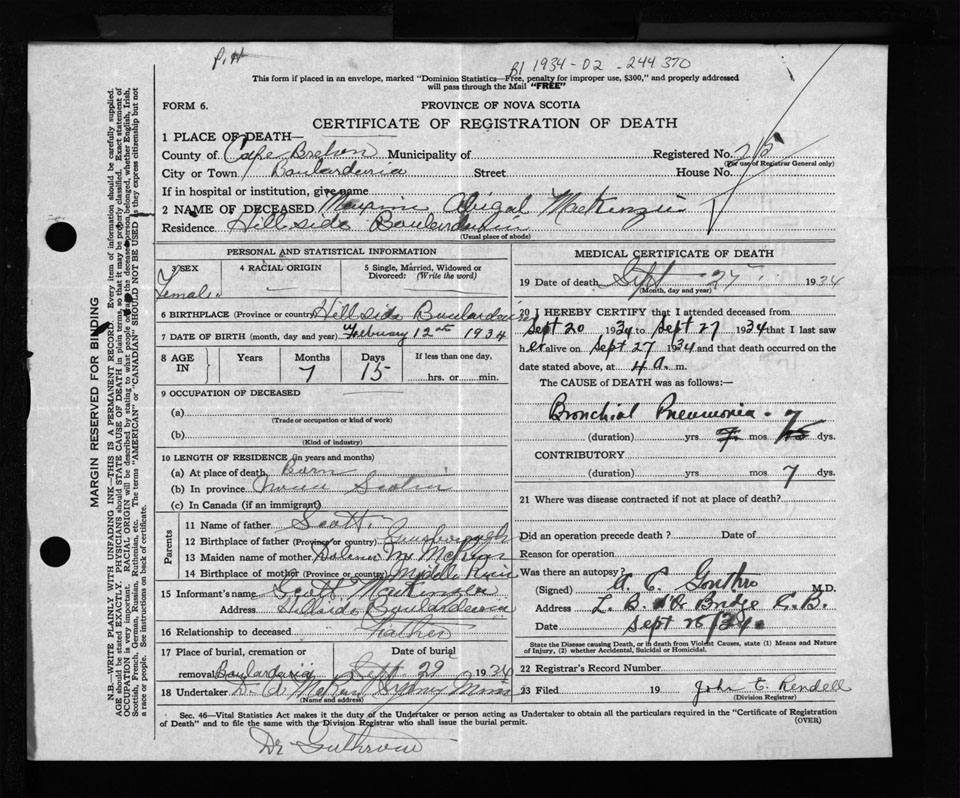 P.H
B1 1934-02-244370
This form if placed in an envelope, marked "Dominion Statistics—Free, penalty for improper use, $300," and properly addressed
will pass through the Mail "FREE"
FORM 6.
PROVINCE OF NOVA SCOTIA
CERTIFICATE OF REGISTRATION OF DEATH
1 PLACE OF DEATH—
County of Cape Breton Municipality of Registered No.
(For use of Registrar General only)
City or Town Boularderia Street House No.
If in hospital or institution, give name
2 NAME OF DECEASED Abigal MacKenzie
Residence Hillside Boularderia
(Usual place of abode)
PERSONAL AND STATISTICAL INFORMATION
3 SEX 4 RACIAL ORIGIN 5 Single, Married, Widowed or
Divorced: (Write the word)
Female.
6 BIRTHPLACE (Province or country) Hillside Boularderia
7 DATE OF BIRTH (month, day and year) February 12th 1934
8 AGE IN Years Months Days If less than one day,
7 15 hrs. or min.
9 OCCUPATION OF DECEASED
(a)
(Trade or occupation or kind of work)
(b)
(Kind of industry)
10 LENGTH OF RESIDENCE (in years and months)
(a) At place of death Born
(b) In province Nova Scotia
(c) In Canada (if an immigrant)
Parents
11 Name of father Scott.
12 Birthplace of father (Province or country)
13 Maiden name of mother
14 Birthplace of mother (Province or country) Middle River
15 Informant's name Scott MacKenzie
Address Hillside Boularderia
16 Relationship to deceased Father
17 Place of burial, cremation or Date of burial
removal Boularderia Sept. 29 1934
18 Undertaker Sydney Mines
(Name and address)
MEDICAL CERTIFICATE OF DEATH
19 Date of death Sept 27 1934
(Month, day and year)
20 I HEREBY CERTIFY that I attended deceased from
Sept 20 1934 to Sept 27 1934 that I last saw
her alive on Sept 27 1934 and that death occurred on the
date stated above, at 4 a. m.
The CAUSE of DEATH was as follows:—
Bronchial Pneumonia -
(duration) yrs mos 7 dys.
CONTRIBUTORY
(duration) yrs mos 7 dys.
21 Where was disease contracted if not at place of death?
Did an operation precede death? Date of
Reason for operation
Was there an autopsy?
(Signed) M.D.
Address Bridge C.B.
Date Sept 28/34.
State the Disease causing Death, or in death from Violent Causes, state (1) Means and Nature
of Injury, (2) whether Accidental, Suicidal or Homicidal.
22 Registrar's Record Number
23 Filed 19 John E. Rendell
(Division Registrar)
Sec. 46—Vital Statistics Act makes it the duty of the Undertaker or person acting as Undertaker to obtain all the particulars required in the "Certificate of Registration
of Death" and to file the same with the Division Registrar who shall issue the burial permit. (OVER)
MARGIN RESERVED FOR BINDING
N.B.—WRITE PLAINLY WITH UNFADING INK—THIS IS A PERMANENT RECORD. Every item of information should be carefully supplied.
AGE should be stated EXACTLY. PHYSICIANS should STATE CAUSE OF DEATH in plain terms, so that it may be properly classified. Exact statement of
OCCUPATION is very important. RACIAL ORIGIN will be described by stating to what people or the deceased person belonged, whether English, Irish,
Scottish, French, German, Russian, Ruthenian, etc. The terms "AMERICAN" or "CANADIAN" SHOULD NOT BE USED as they express citizenship but not
a race or people. See instructions on back of certificate.